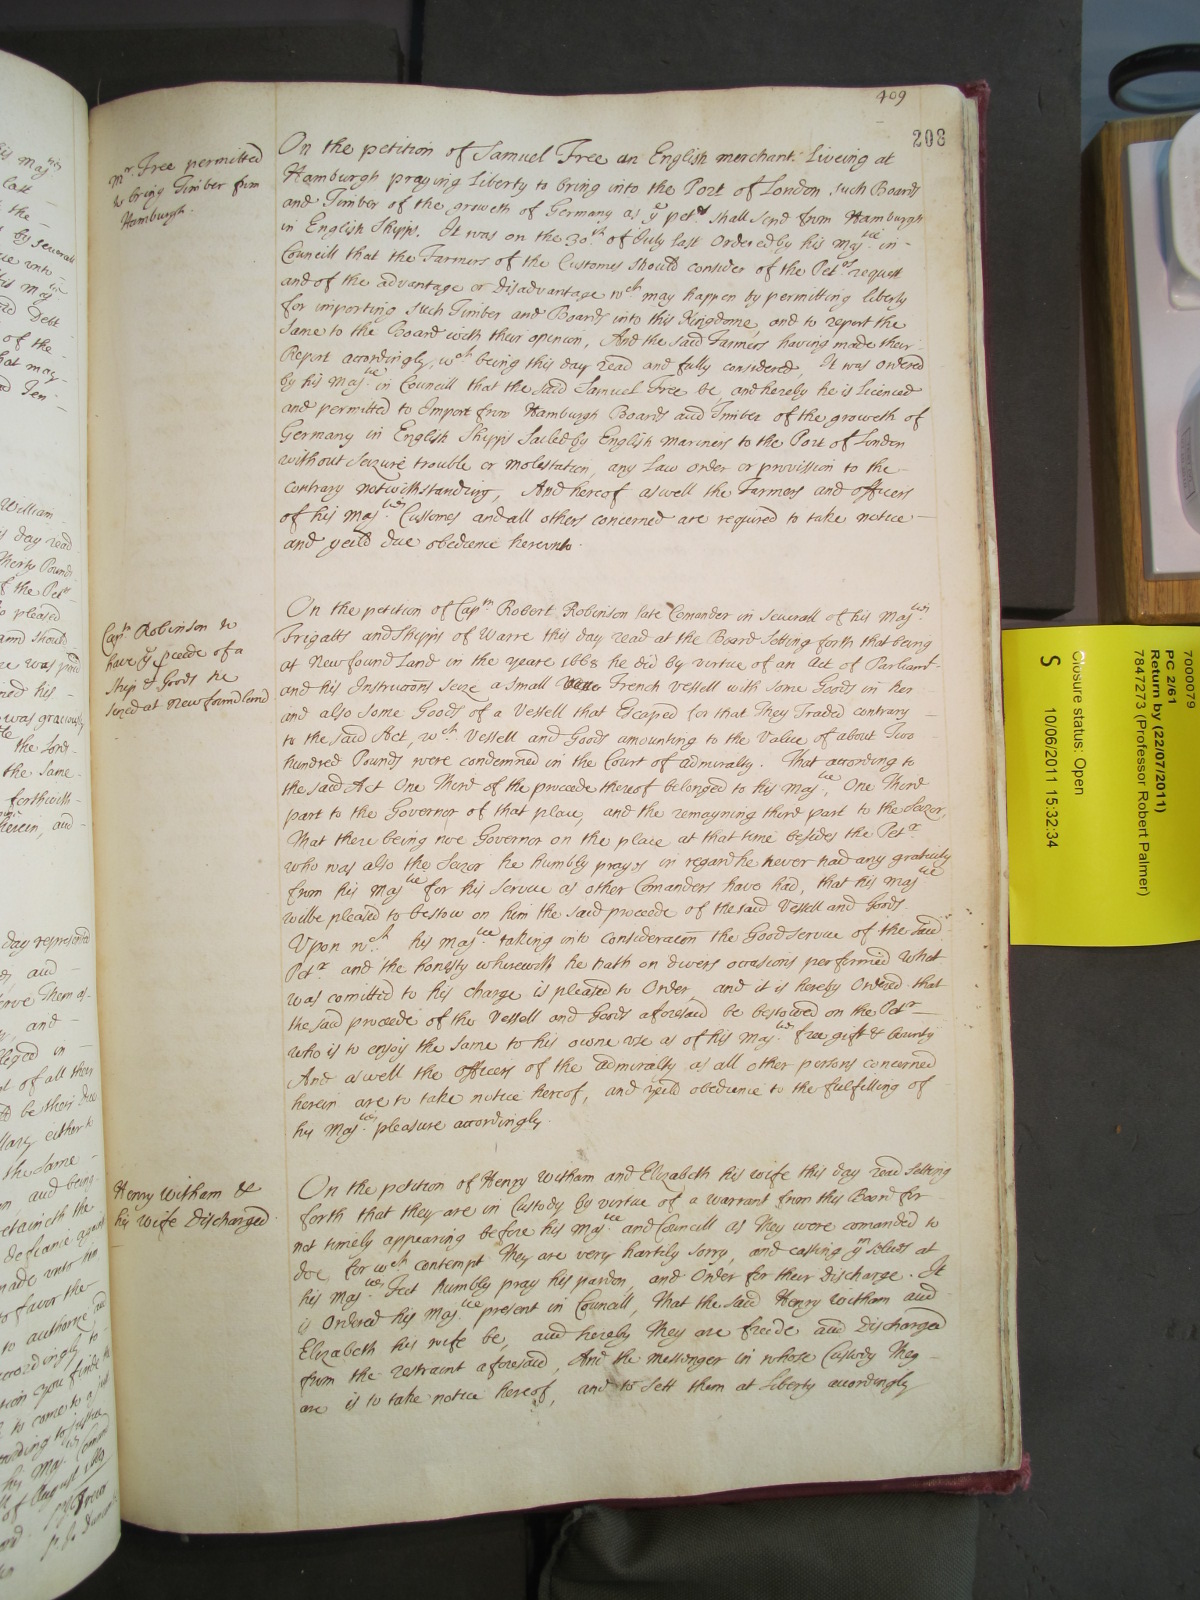 409
208
Mr. Free permitted
to bring Timber from
Hamburgh.
On the petition of Samuel Free an English merchant Liveing at
Hamburgh praying Liberty to bring into the Port of London such Boards
and Timber of the growth of Germany as ye petr shall send from Hamburgh
in English Shipps. It was on the 30th of July last Ordered by his Majtie in
Councill that the Farmers of the Customes should consider of the Petrs request
and of the advantage or Disadvantage wch may happen by permitting liberty
for importing such Timber and Boards into this Kingdome, and to report the
same to the Board with their opinion, And the said Farmers having made their
Report accordingly, wch being this day read and fully considered, It was ordered
by his Majtie in Councill that the said Samuel Free be, and hereby he is Licenced
and permitted to Import from Hamburgh Boards and Timber of the growth of
Germany in English Shipps Sailed by English mariners to the Port of London
without Seizure trouble or molestation, any Law order or provission to the
contrary notwithstanding, And hereof aswell the Farmers and officers
of his Majties Customes and all others concerned are required to take notice
and yeild due obedience hereunto.
Captn Robinson to
have ye proceede of a
Ship & Goods he
seized at Newfoundland
On the petition of Captn Robert Robinson late Comander in severall of his Majties
Frigatts and Shipps of Warre this day read at the Board Setting forth that being
at Newfound Land in the yeare 1668 he did by virtue of an Act of Parliamt
and his Instructions seize a small French Vessell with some Goods in her
and also some Goods of a Vessell that Escaped for that They Traded contrary
to the said Act, wch Vessell and Goods amounting to the Value of about Two
hundred Pounds were condemned in the Court of Admiralty. That according to
the said Act One Third of the proceede thereof belonged to his Majtie, One Third
part to the Governor of that place, and the remayning third part to the Seizor,
That there being noe Governor on the place at that time besides the Petr
who was also the Seizor he humbly prayes in regard he never had any gratuity
from his Majtie for his service as other Comanders have had, that his Majtie
wilbe pleased to bestow on him the said proceede of the said Vessell and Goods.
Upon wch his Majtie taking into consideracon the Good service of the said
Petr and the honesty wherewith he hath on divers occasions performed what
was comitted to his charge is pleased to Order, and it is hereby Ordered that
the said proceede of the Vessell and Goods aforesaid be bestowed on the Petr
who is to enjoy the same to his owne use as of his Majties free gift & bounty
And aswell the officers of the Admiralty as all other persons concerned
herein are to take notice hereof, and yeild obedience to the fulfilling of
his Majties pleasure accordingly.
Henry Witham &
his wife Discharged
On the petition of Henry Witham and Elizabeth his wife this day read setting
forth that they are in Custody by virtue of a warrant from this Board for
not timely appearing before his Majtie and Councill as They were comanded to
doe, for wch contempt They are very hartily sorry, and casting ymselves at
his Majties Feet humbly pray his pardon, and Order for their Discharge. It
is Ordered his Majtie present in Councill, That the said Henry Witham and
Elizabeth his wife be, and hereby They are freede and Discharged
from the restraint aforesaid, And the messenger in whose Custody They
are is to take notice hereof, and to sett them at Liberty accordingly
7000079
PC 2/61
Return by (22/07/2011)
7847273 (Professor Robert Palmer)
Closure status: Open
10/06/2011 15:32:34
S